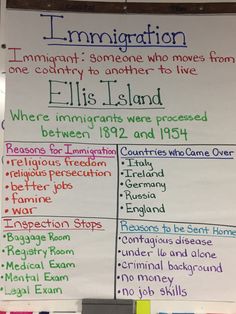 Immigration
Immigrant: someone who moves from
one country to another to live
Ellis Island
Where immigrants were processed
between 1892 and 1954
Reasons for Immigration
•religious freedom
•religious persecution
•better jobs
•famine
•war
Countries who Came Over
•Italy
•Ireland
•Germany
•Russia
•England
Inspection Stops
•Baggage Room
•Registry Room
•Medical Exam
•Mental Exam
•Legal Exam
Reasons to be Sent Home
•contagious disease
•under 16 and alone
•criminal background
•no money
•no job skills